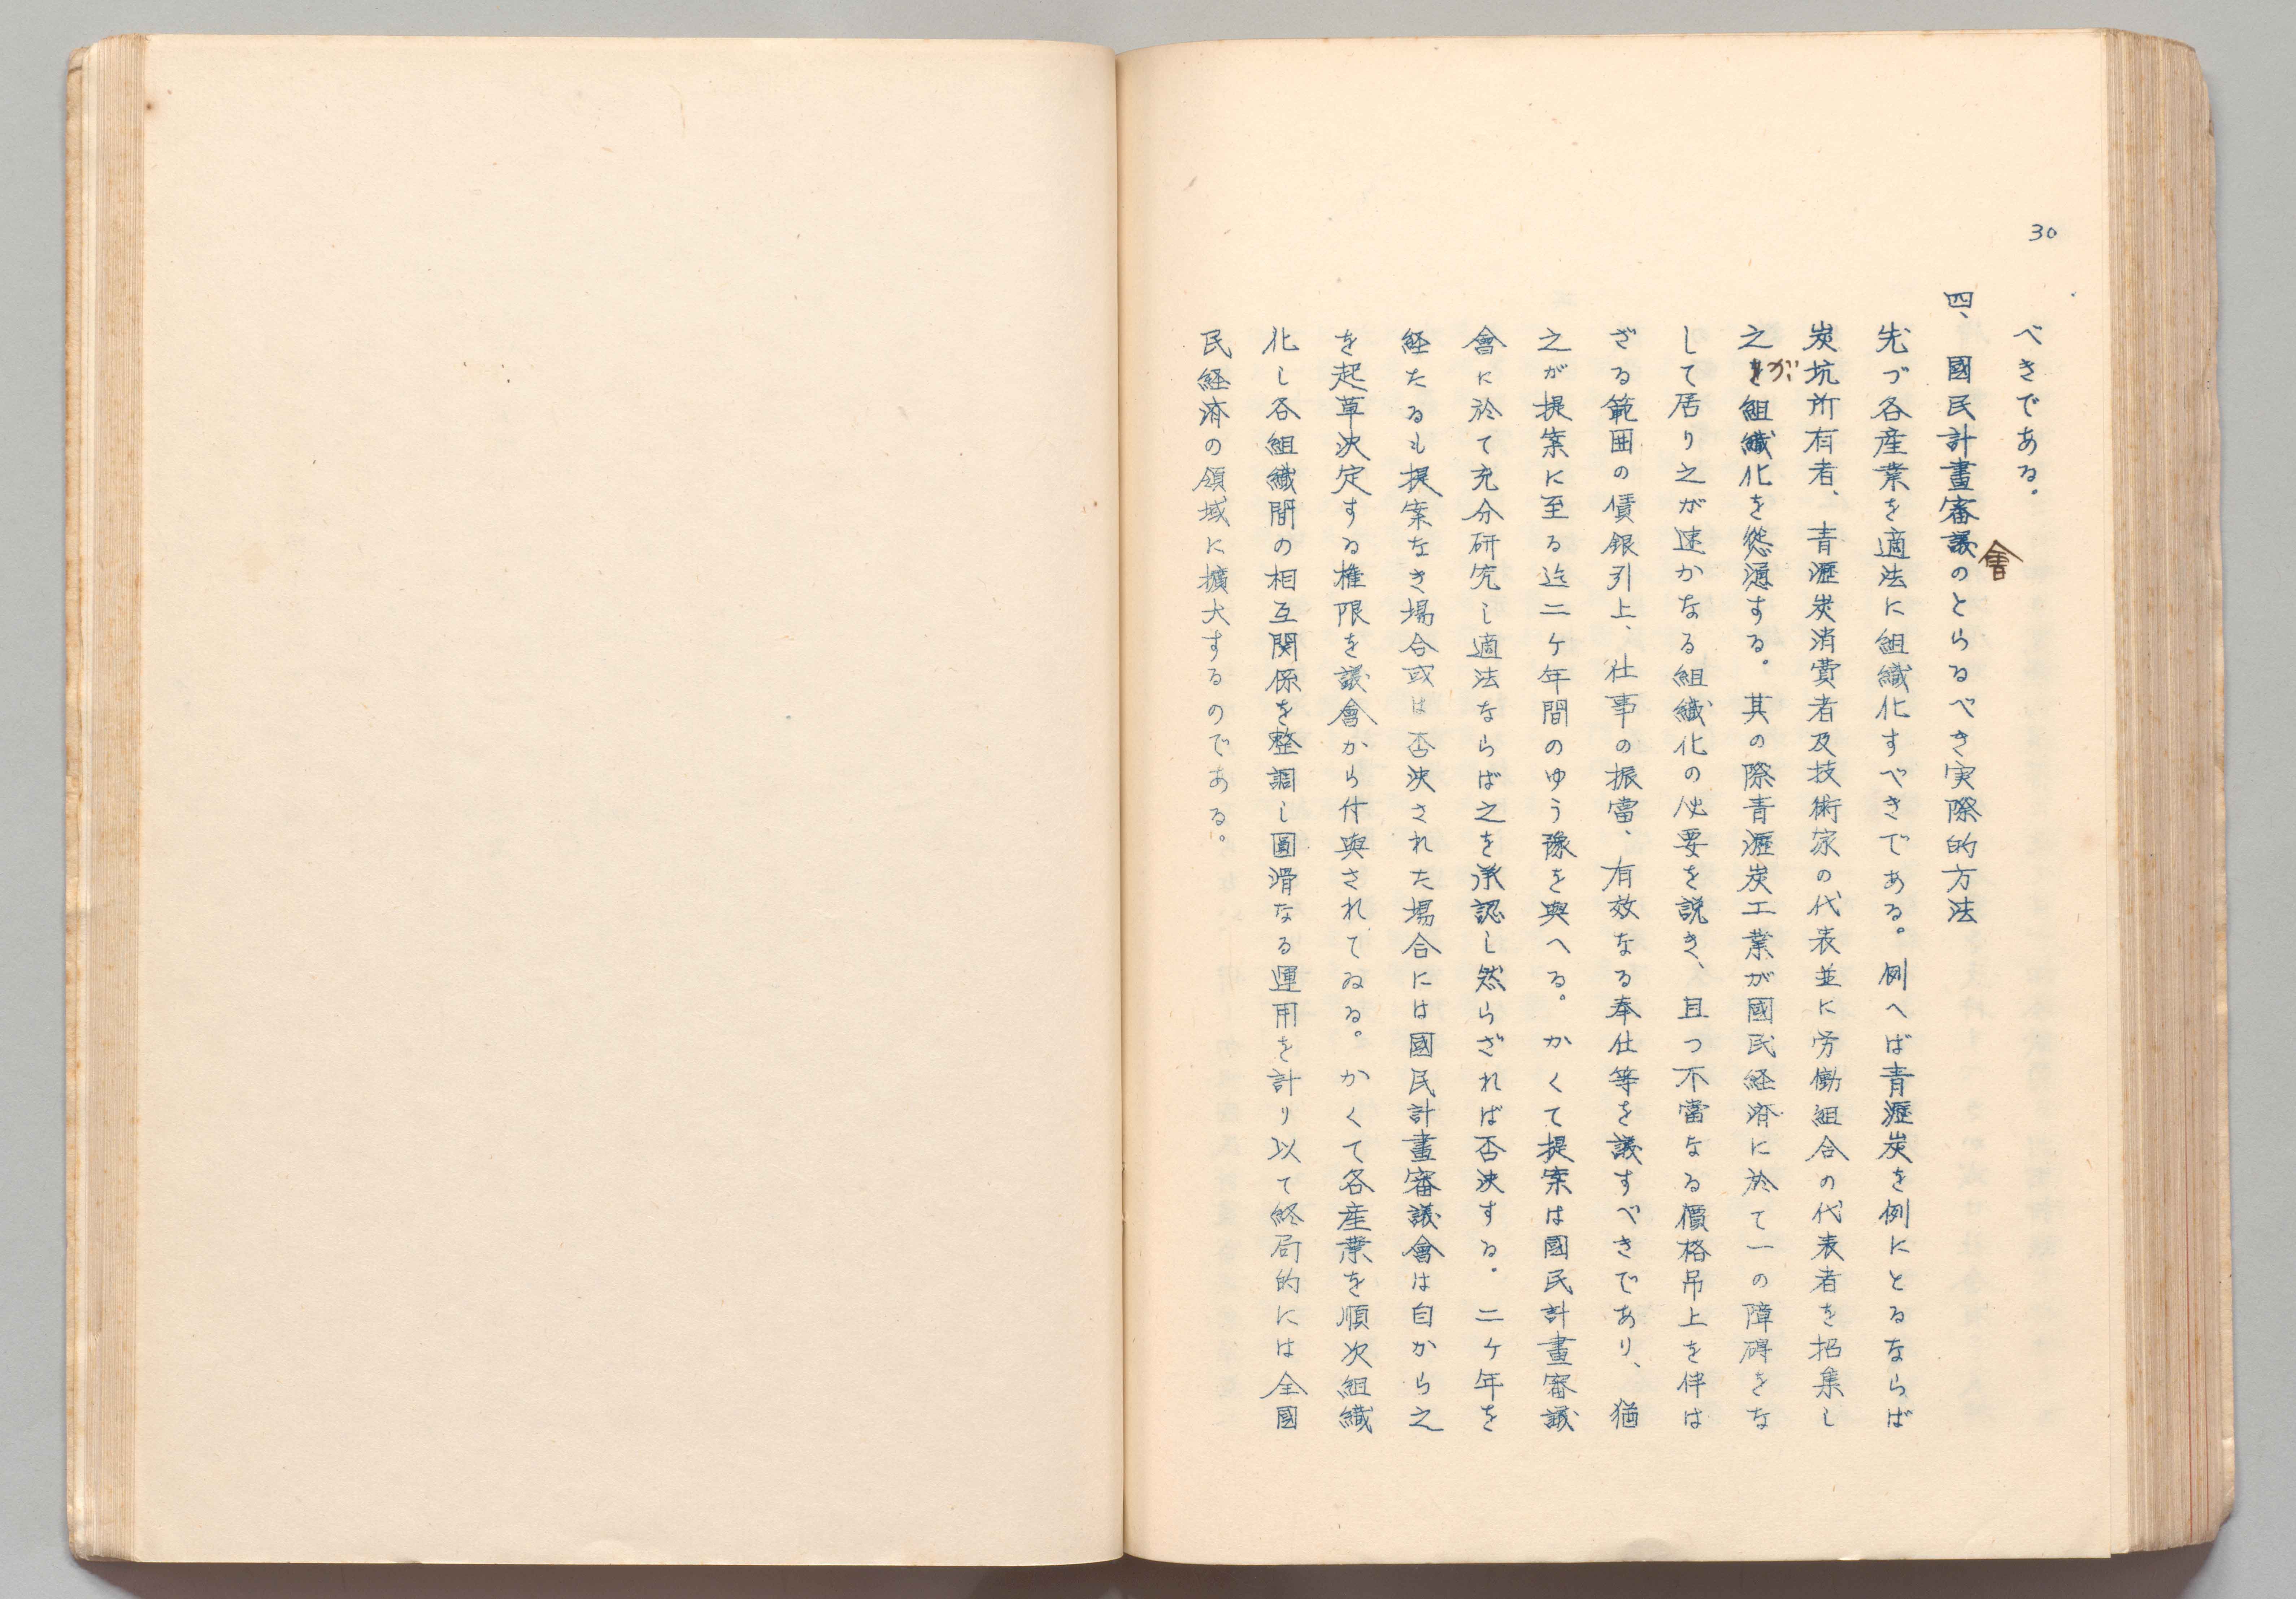 30
べきである。
四、國民計畫審議會のとらるべき実際的方法
先づ各産業を適法に組織化すべきである。例へば青瀝炭を例にとるならば
炭坑所有者、青瀝炭消費者及技術家の代表並に労働組合の代表者を招集し
之が組織化を慫慂する。其の際青瀝炭工業が國民経済に於て一の障碍をな
して居り之が速かなる組織化の必要を説き、且つ不當なる價格吊上を伴は
ざる範囲の賃銀引上、仕事の振當、有效なる奉仕等を議すべきであり、猶
之が提案に至る迄二ケ年間のゆう豫を與へる。かくて提案は國民計畫審議
會に於て充分研究し適法ならば之を承認し然らざれば否決する。二ケ年を
経たるも提案なき場合或は否決された場合には國民計畫審議會は自から之
を起草決定する権限を議會から付與されてゐる。かくて各産業を順次組織
化し各組織間の相互関係を整調し圓滑なる運用を計り以て終局的には全國
民経済の領域に擴大するのである。